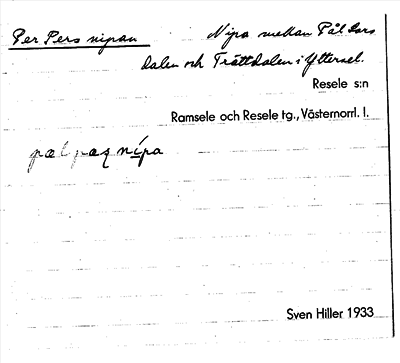 Per Pers nipan
Nipa mellan Pål Lars
dalen och Trättdalen i Yttersel.
Resele s:n
Ramsele och Resele tg., Västernorrl. l.
nípa
Sven Hiller 1933